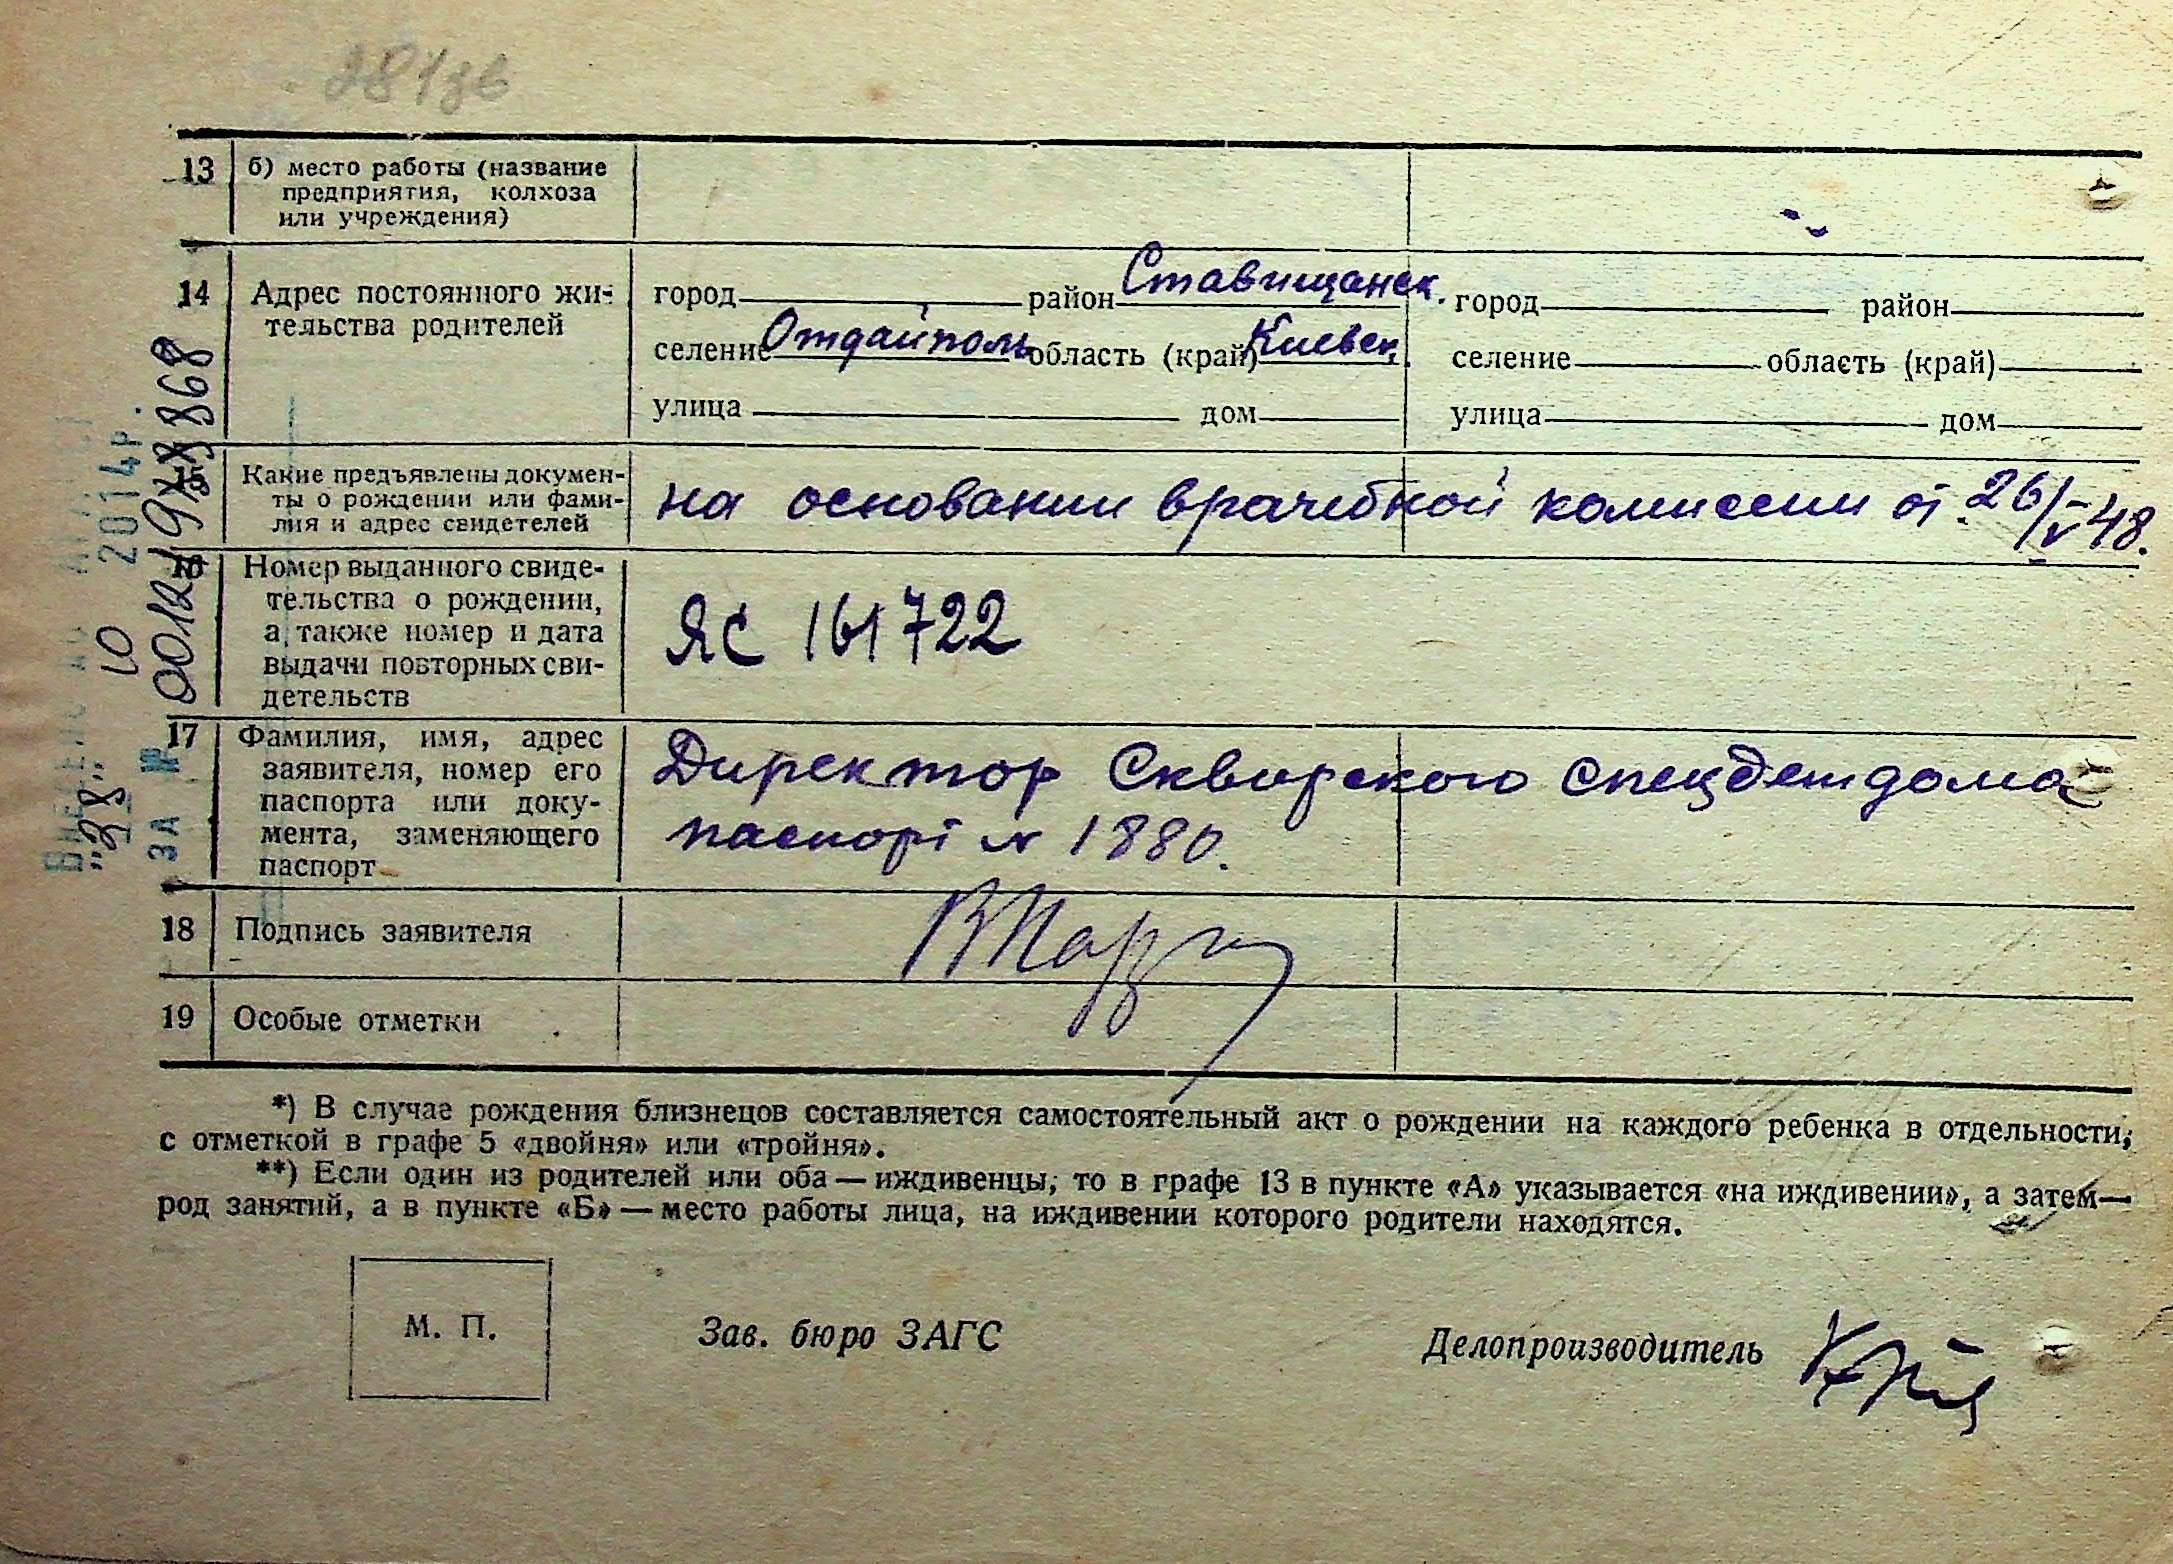 281зв
13 б) место работы (название
предприятия, колхоза
или учреждения)
14 Адрес постоянного жи-
тельства родителей
город район Ставищанск. город район
селение Отдайполь область (край) Киевск. селение область (край)
улица дом улица дом
15 Какие предъявлены докумен-
ты о рождении или фами-
лия и адрес свидетелей
на основании врачебной комиссии от 26/V 48.
16 Номер выданного свиде-
тельства о рождении,
а также номер и дата
выдачи повторных сви-
детельств
ЯС 161722
17 Фамилия, имя, адрес
заявителя, номер его
паспорта или доку-
мента, заменяющего
паспорт
Директор Сквирского спецдетдома
паспорт № 1880.
18 Подпись заявителя
19 Особые отметки
*) В случае рождения близнецов составляется самостоятельный акт о рождении на каждого ребенка в отдельности,
с отметкой в графе 5 «двойня» или «тройня».
**) Если один из родителей или оба — иждивенцы, то в графе 13 в пункте «А» указывается «на иждивении», а затем —
род занятий, а в пункте «Б» — место работы лица, на иждивении которого родители находятся.
М. П. Зав. бюро ЗАГС Делопроизводитель
"28" 10 2014 р.
ЗА №